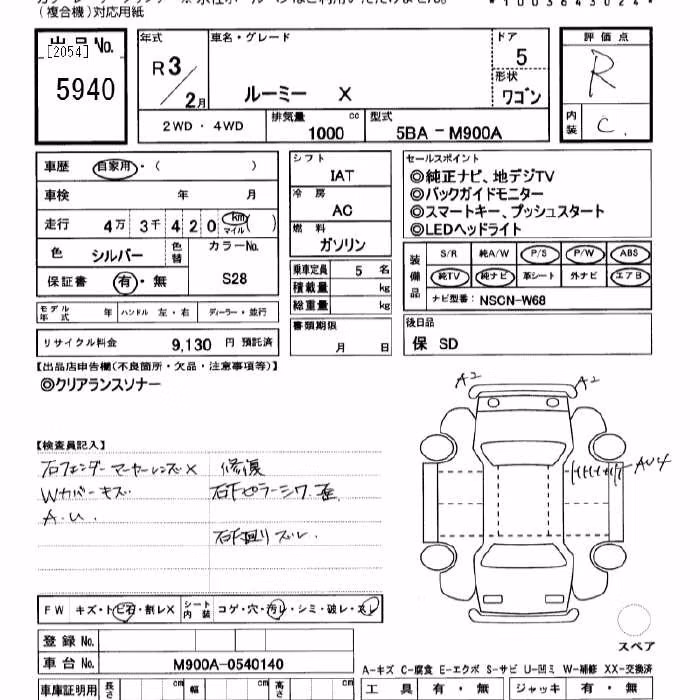 (複合機)対応用紙
*1003643024*
出品No.
[2054]
5940
年式
R3/2月
車名・グレード
ルーミー X
ドア
5
形状
ワゴン
評価点
R
内装
C.
2WD・4WD
排気量
1000 cc
型式
5BA-M900A
車歴 自家用・( )
車検 年 月
走行 4万 3千 4 2 0 km マイル ( )
色 シルバー 色替
カラーNo.
S28
保証書 有・無
モデル年式 年 ハンドル 左・右 ディーラー・並行
リサイクル料金 9,130 円 預託済
シフト
IAT
冷房
AC
燃料
ガソリン
乗車定員 5 名
積載量 kg
総重量 kg
書類期限
月 日
セールスポイント
◎純正ナビ、地デジTV
◎バックガイドモニター
◎スマートキー、プッシュスタート
◎LEDヘッドライト
装備品
S/R 純A/W P/S P/W ABS
純TV 純ナビ 革シート 外ナビ エアB
ナビ型番: NSCN-W68
後日品
保 SD
【出品店申告欄(不良箇所・欠品・注意事項等)】
◎クリアランスソナー
【検査員記入】
右フェンダーマーカーレンズX
Wカバーキズ
A.U.
修復
右Fピラーシワ.歪
右F廻りズレ.
A2
A2
AU4
FW キズ・トビ石・割レX
シート内装 コゲ・穴・汚レ・シミ・破レ・スレ
登録No.
車台No. M900A-0540140
スペア
A-キズ C-腐食 E-エクボ S-サビ U-凹ミ W-補修 XX-交換済
車庫証明用 長さ cm 幅 cm 高さ cm
工具 有・無 ジャッキ 有・無